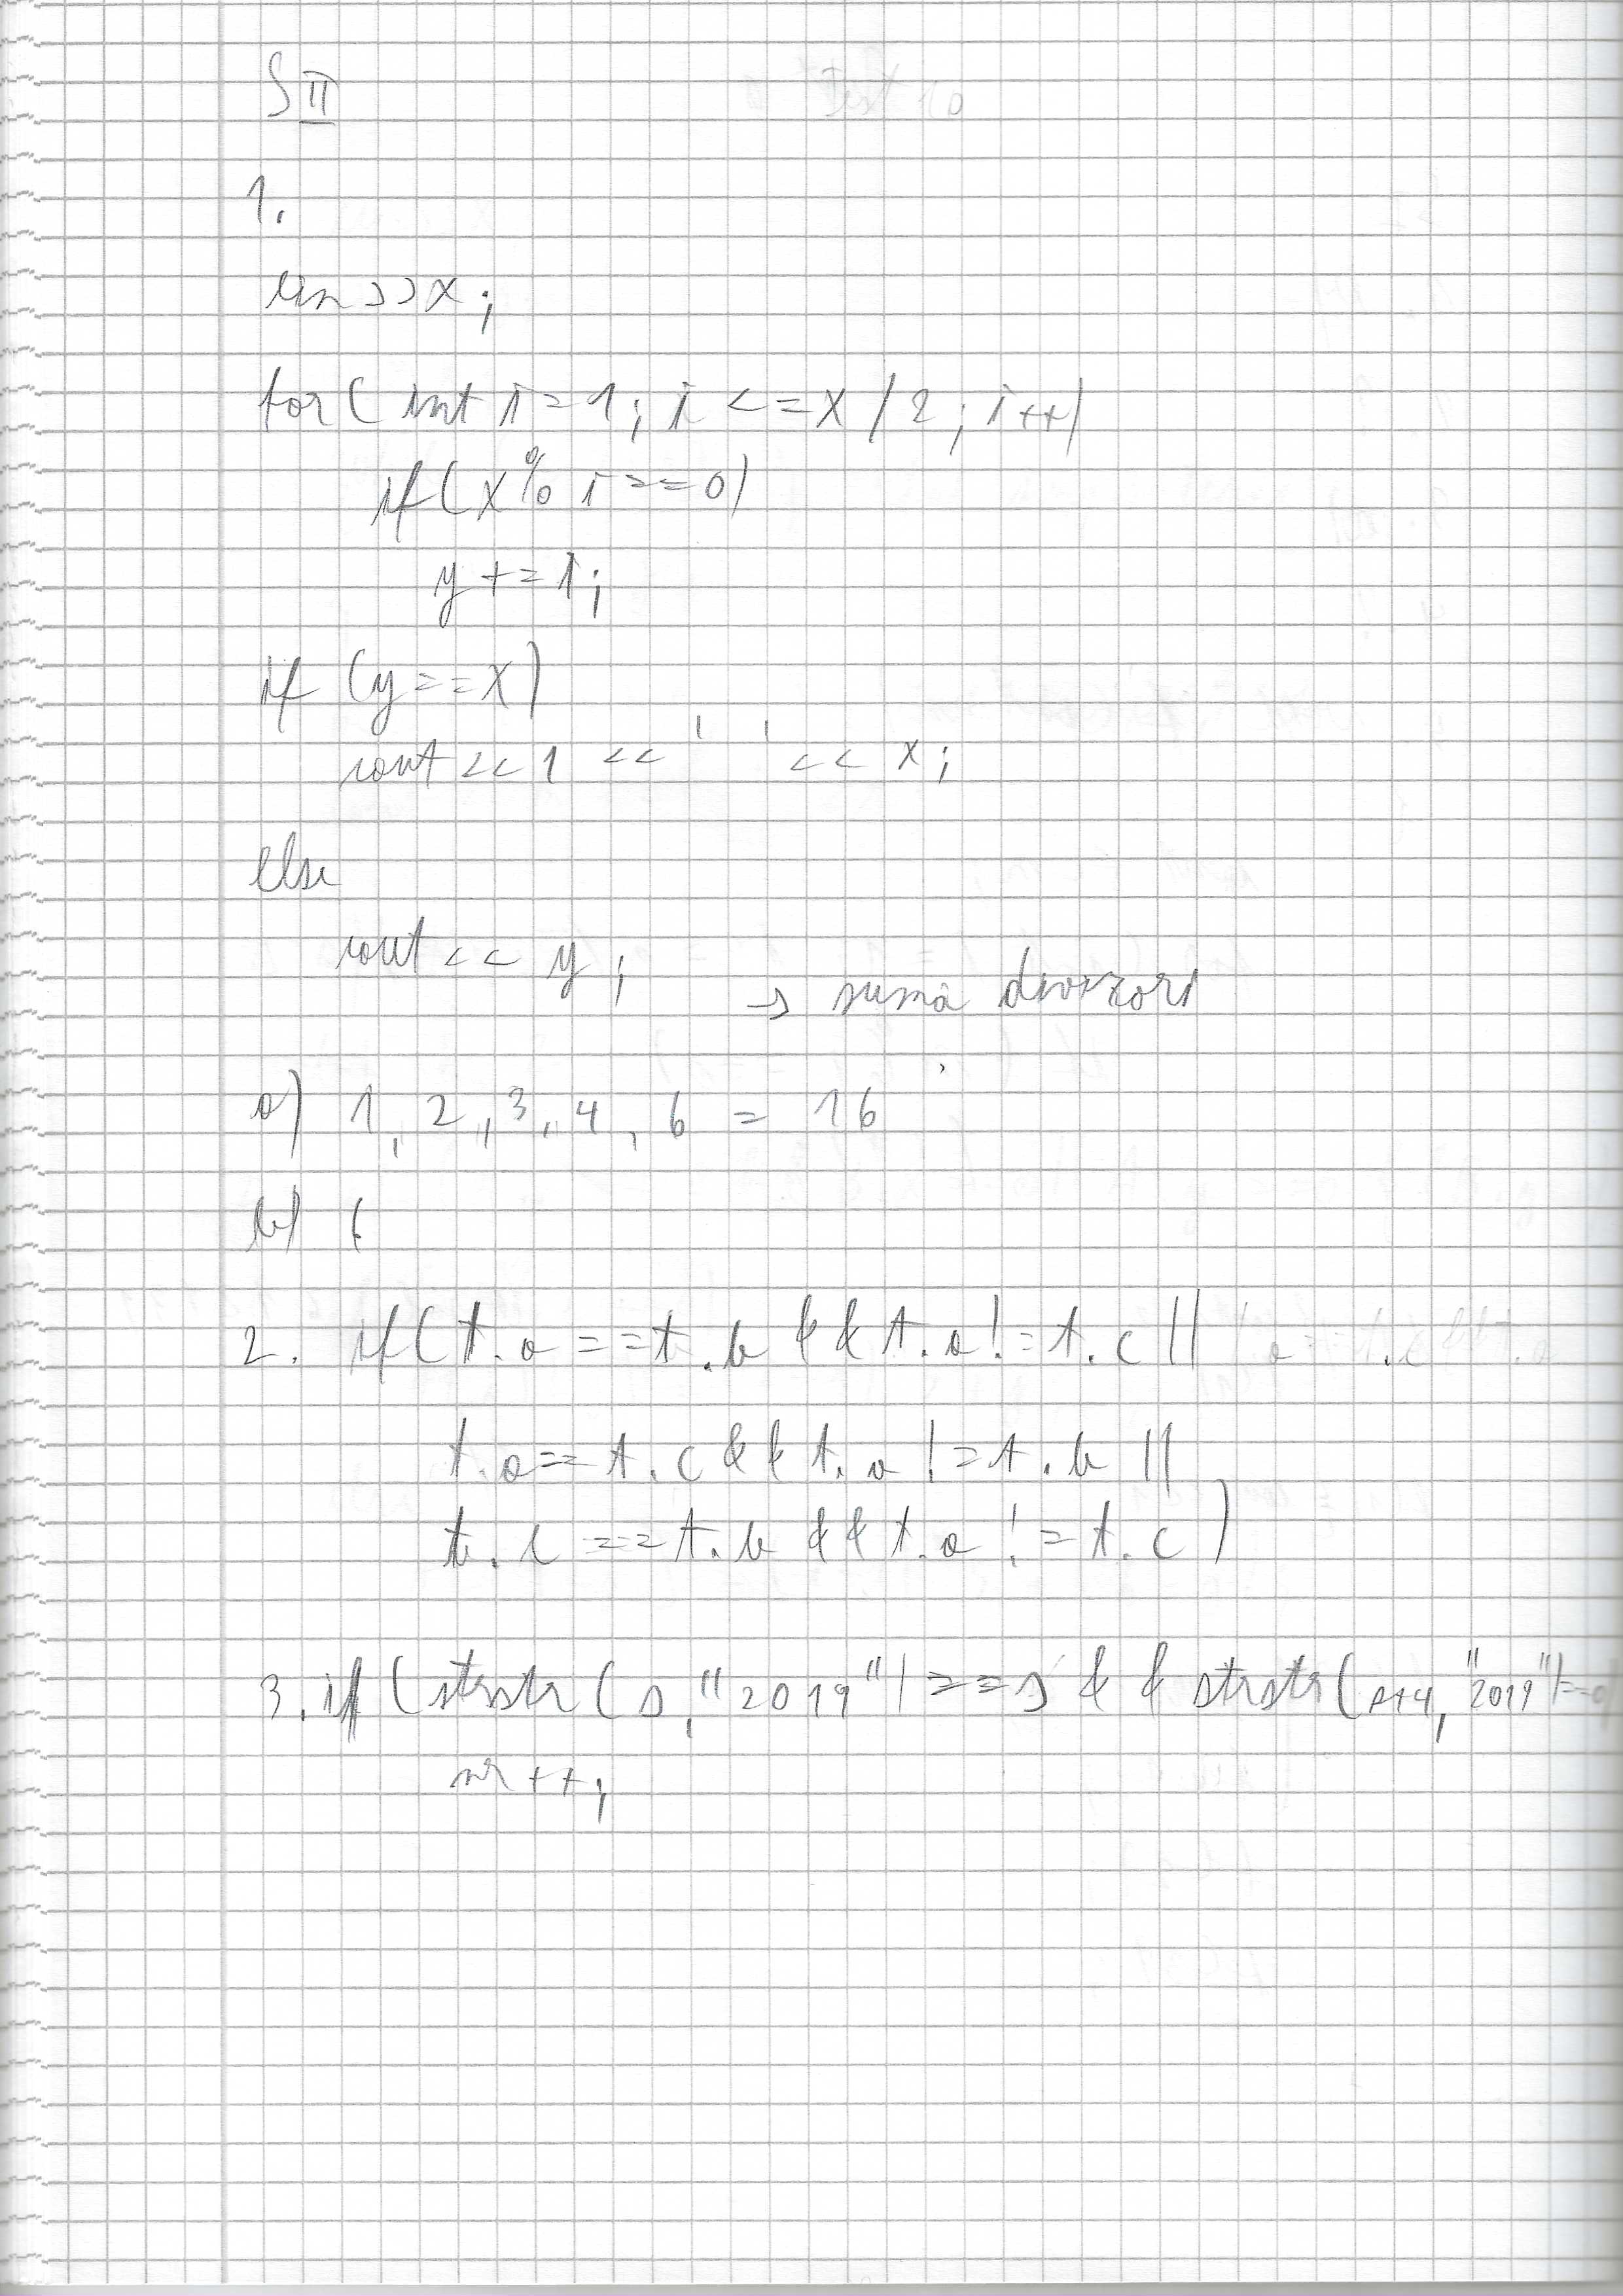 SII
1.
cin >> x;
for( int i = 1; i <= x / 2; i++)
if( x % i == 0)
y += i;
if (y == x)
cout << 1 << ' ' << x;
else
cout << y;
→ suma divizori
a) 1, 2, 3, 4, 6 = 16
b) 6
2. if( t.a == t.b && t.a != t.c ||
t.a == t.c && t.a != t.b ||
t.c == t.b && t.a != t.c)
3. if (strstr( s, "2019") == s && strstr( s+4, "2019") == 0)
nr ++;